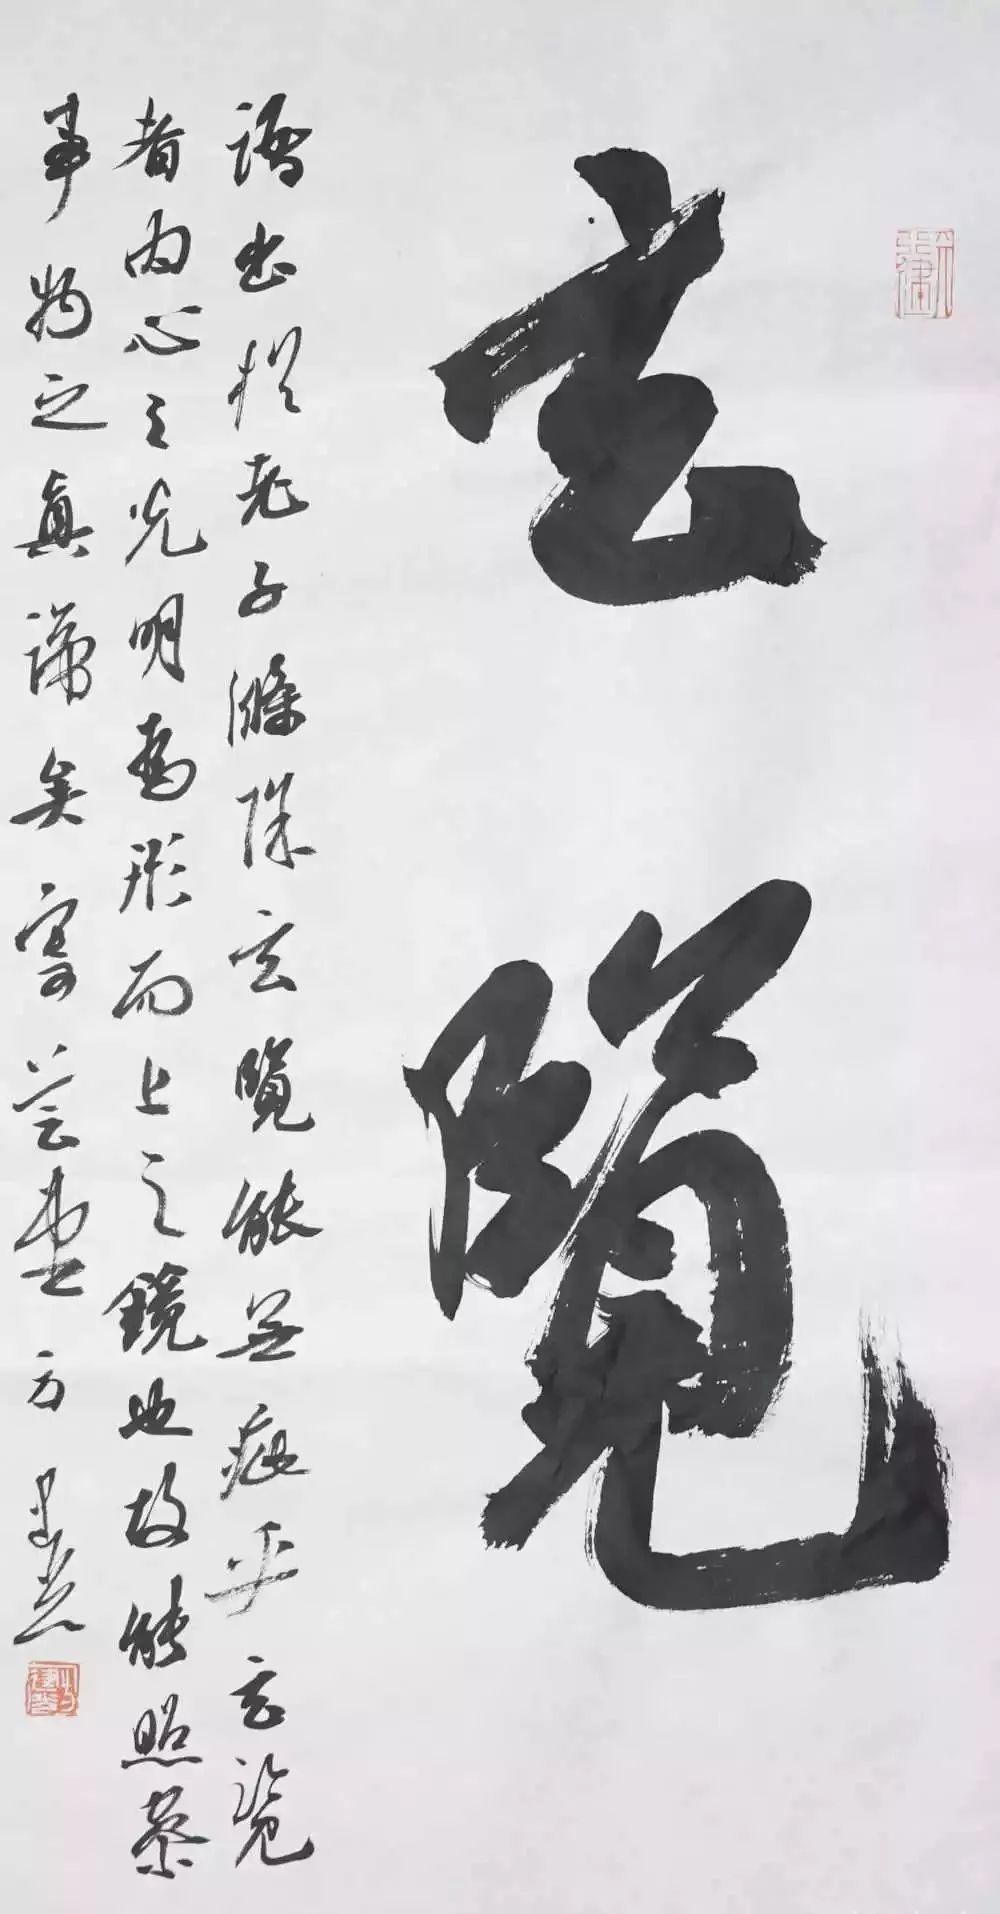 玄覽
語出於老子滌除玄覽能無疵乎玄覽
者內心之光明為形而上之鏡也故能照察
事物之真諦矣寄芸堂方建光